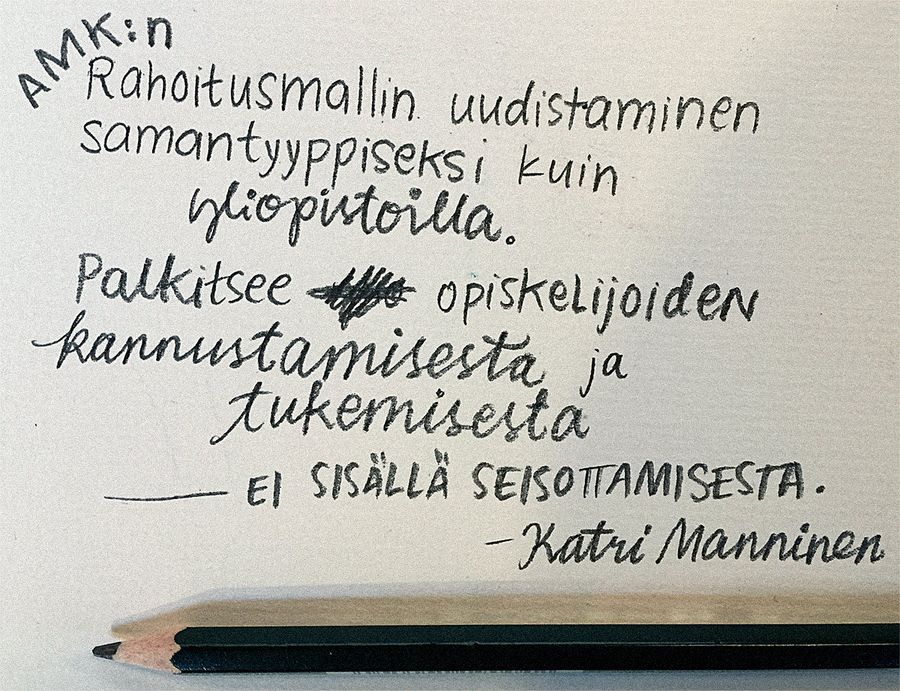 AMK:n
Rahoitusmallin uudistaminen
samantyyppiseksi kuin
yliopistoilla.
Palkitsee opiskelijoiden
kannustamisesta ja
tukemisesta
— EI SISÄLLÄ SEISOTTAMISESTA.
- Katri Manninen